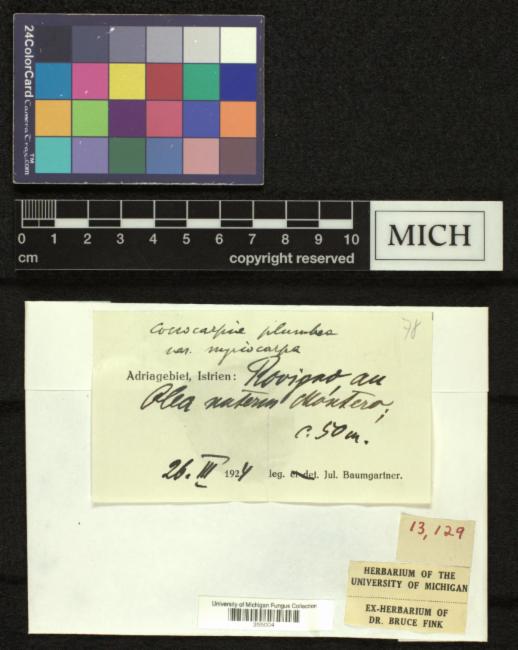 24ColorCard CameraTrax.com
™
0 1 2 3 4 5 6 7 8 9 10
cm copyright reserved
MICH
78
plumbea
var. myriocarpa
Adriagebiet, Istrien: Rovigno, an
Olea Montero,
c. 50 m.
26. III 1924 leg. et det. Jul. Baumgartner.
13,129
HERBARIUM OF THE
UNIVERSITY OF MICHIGAN
EX-HERBARIUM OF
DR. BRUCE FINK
University of Michigan Fungus Collection